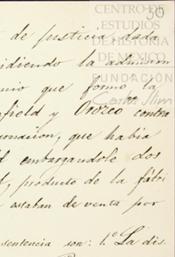 50
CENTRO DE
ESTUDIOS
DE HISTORIA
DE MÉXICO
FUNDACIÓN
de justicia, dada
pidiendo la admision
que formó la
field y Orozco contra
que habia
embargandole dos
producto de la fábri
estaban de venta por
sentencia son: 1º La dis